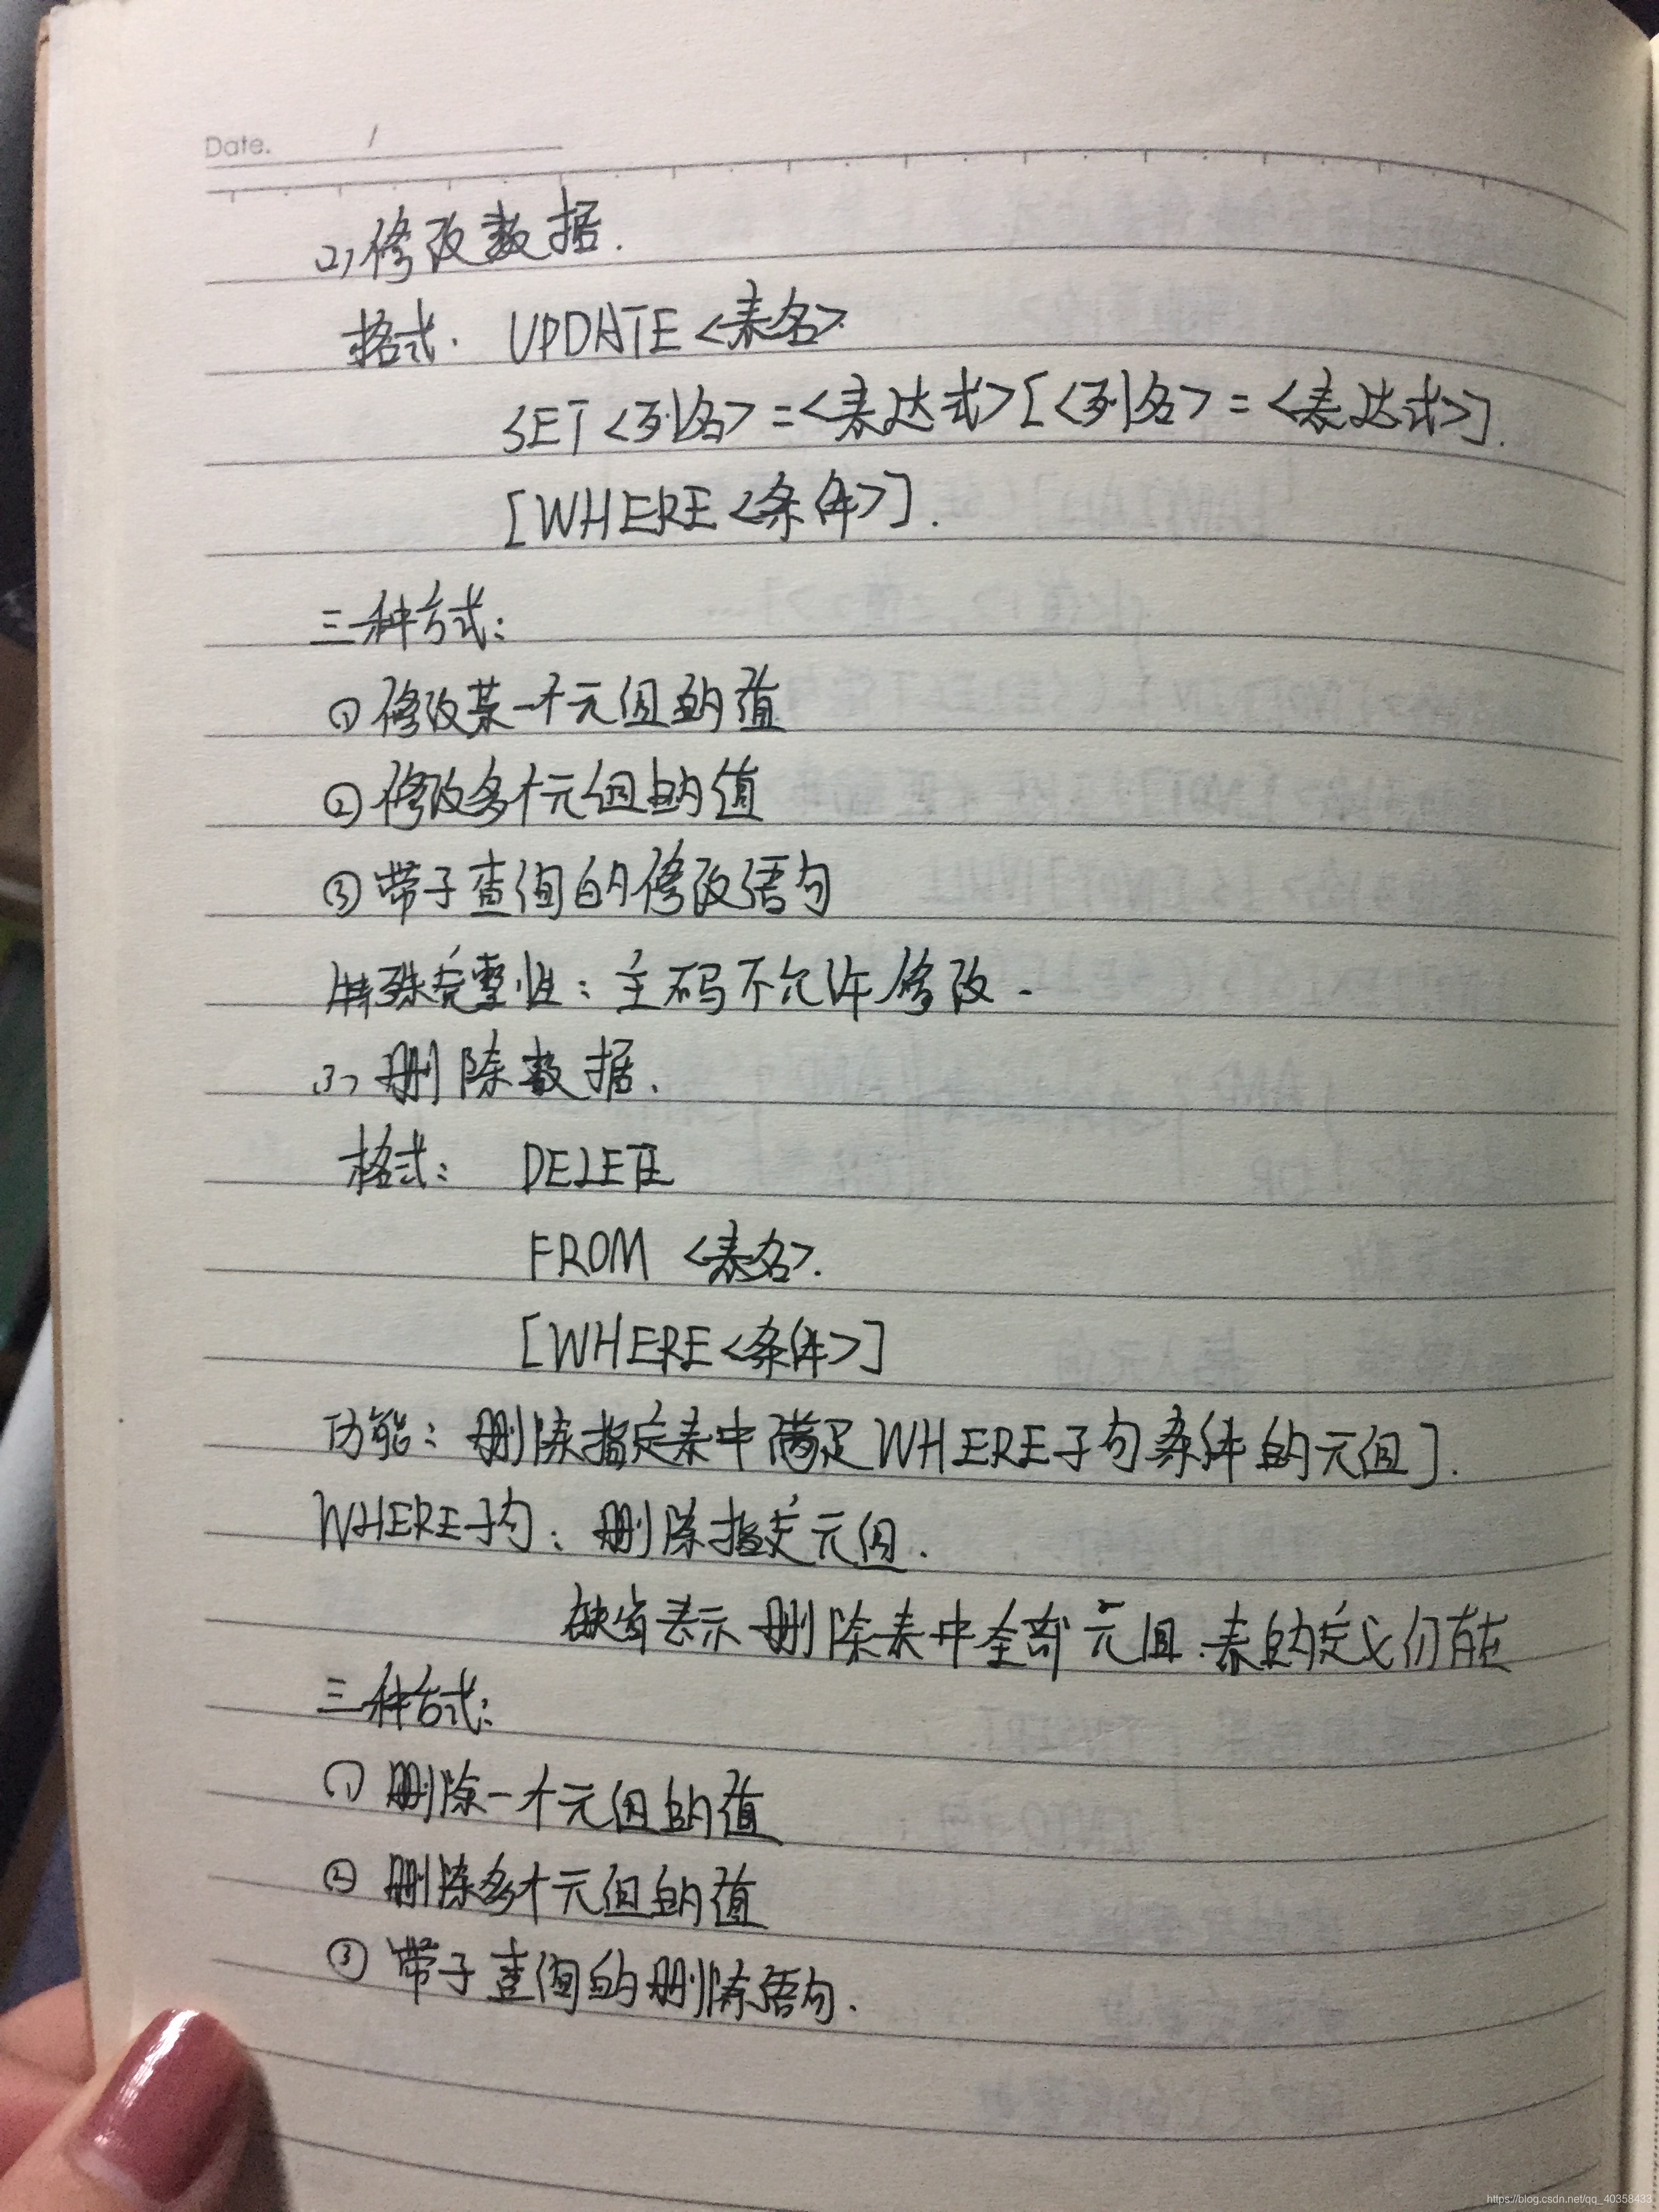 Date. /
2) 修改数据.
格式. UPDATE <表名>
SET <列名> = <表达式> [<列名> = <表达式>].
[WHERE <条件>].
三种方式:
① 修改某一个元组的值
② 修改多个元组的值
③ 带子查询的修改语句
特殊完整性: 主码不允许修改.
3) 删除数据.
格式: DELETE
FROM <表名>.
[WHERE <条件>]
功能: 删除指定表中满足WHERE子句条件的元组].
WHERE子句: 删除指定元组.
缺省表示删除表中全部元组.表的定义仍在
三种方式:
① 删除一个元组的值
② 删除多个元组的值
③ 带子查询的删除语句.
https://blog.csdn.net/qq_40358433